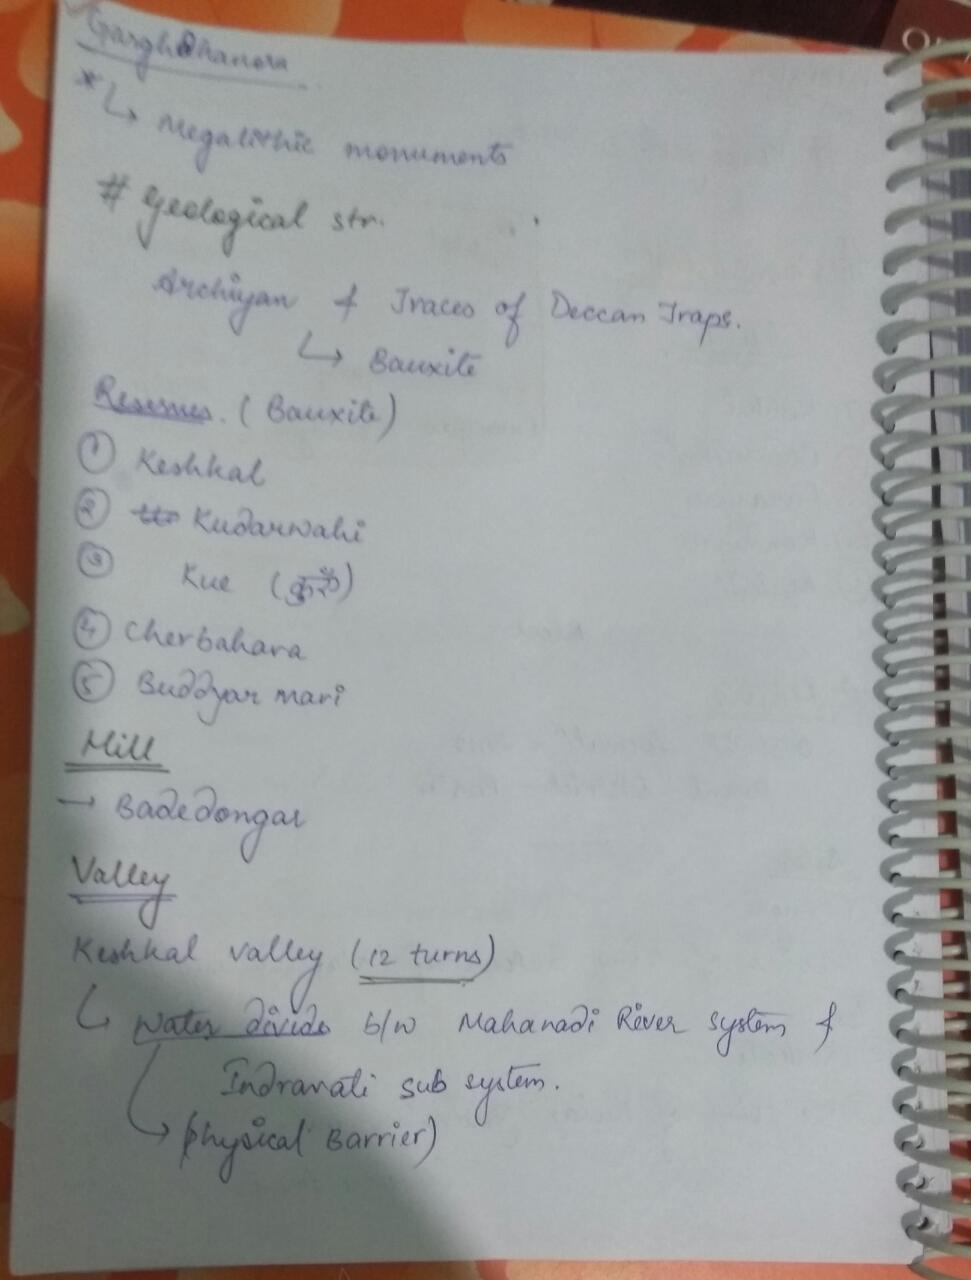 GarghDhanora
* ↳ Megalithic monuments
# Geological str.
Archiyan & Traces of Deccan Traps.
↳ Bauxite
Reserves. (Bauxite)
① Keshkal
② Kudarwahi
③ Kue
④ Cherbahara
⑤ Buddyar mari
Hill
→ Badedongar
Valley
Keshkal valley (12 turns)
↳ Water divide b/w Mahanadi River system &
Indravati sub system.
↳ (physical Barrier)